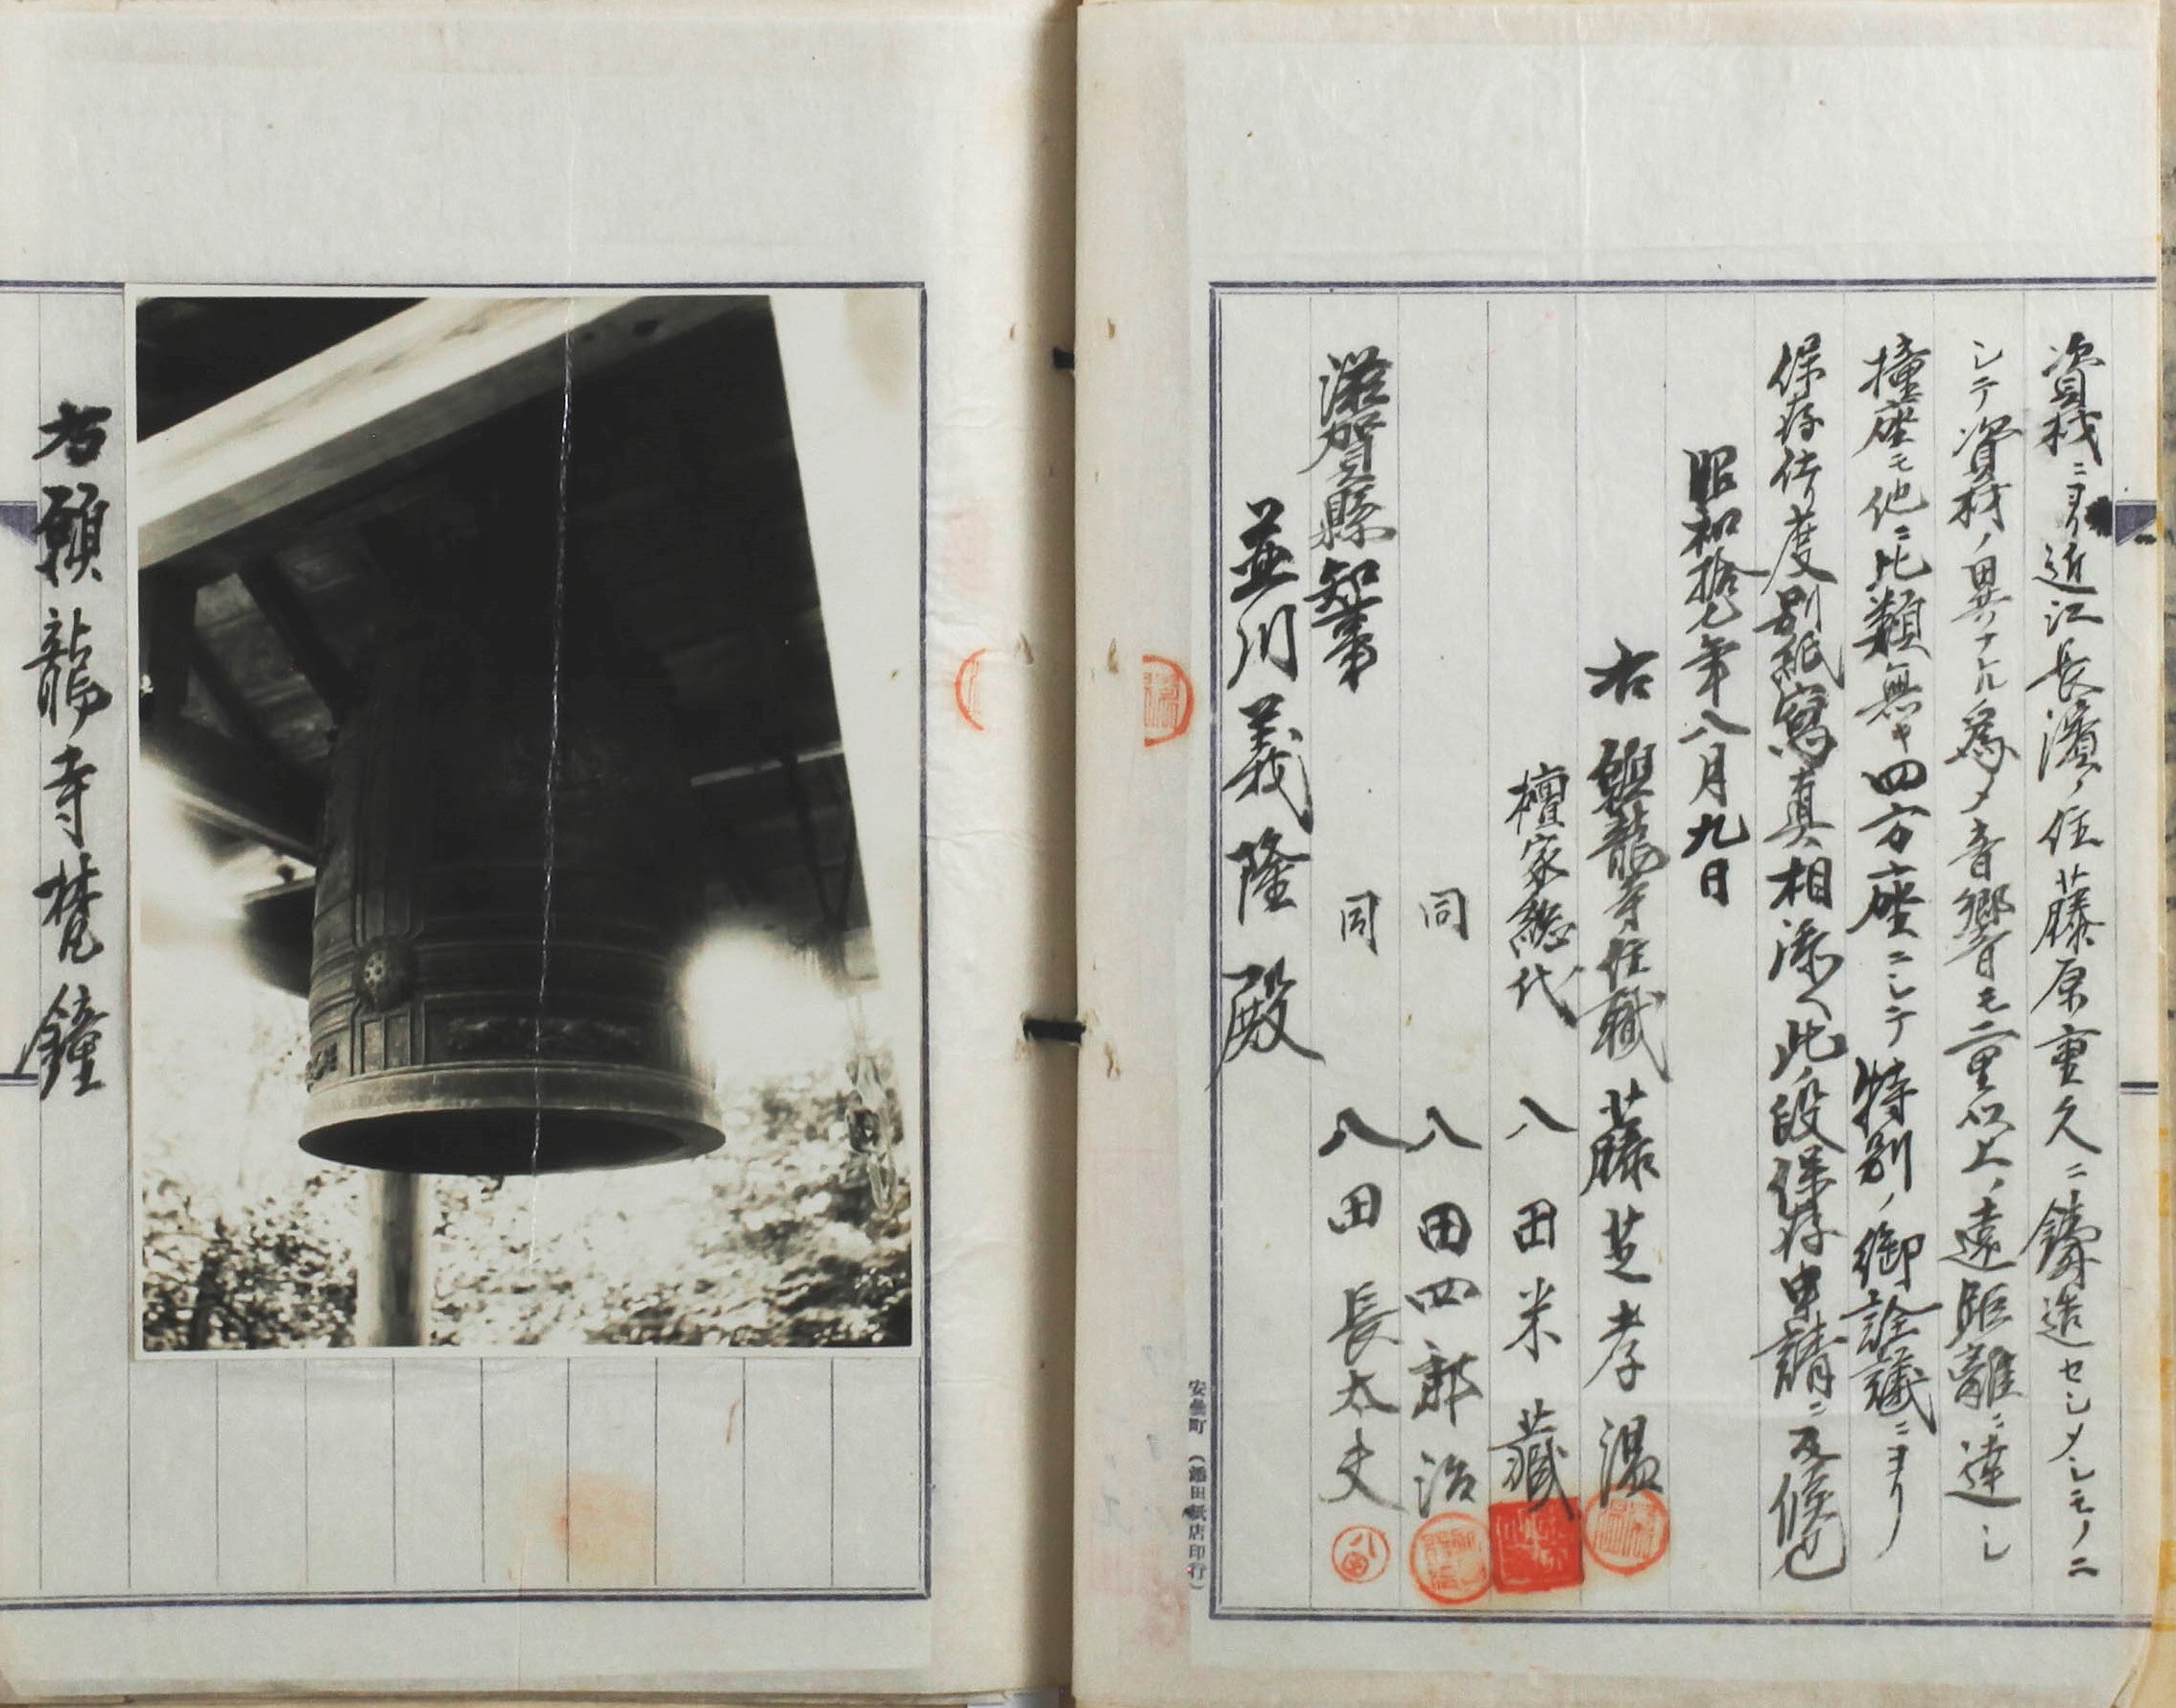 資材ニヨリ近江長濱ノ住藤原重久ニ鑄造セシメシモノニ
シテ資材ノ異ナル為メ音響モ二里以上ノ遠距離ニ達シ
撞座モ他ニ比類無キ四方座ニシテ特別ノ御詮議ニヨリ
保存仕リ度別紙寫真相添ヘ此段保存申請ニ及候也
昭和拾七年八月九日
右 龍寺住職 藤芝孝温
檀家總代 八田米藏
同 八田四郎治
同 八田長太夫
八田
滋賀縣知事
並川義隆殿
安曇町 (田紙店印行)
右願龍寺梵鐘